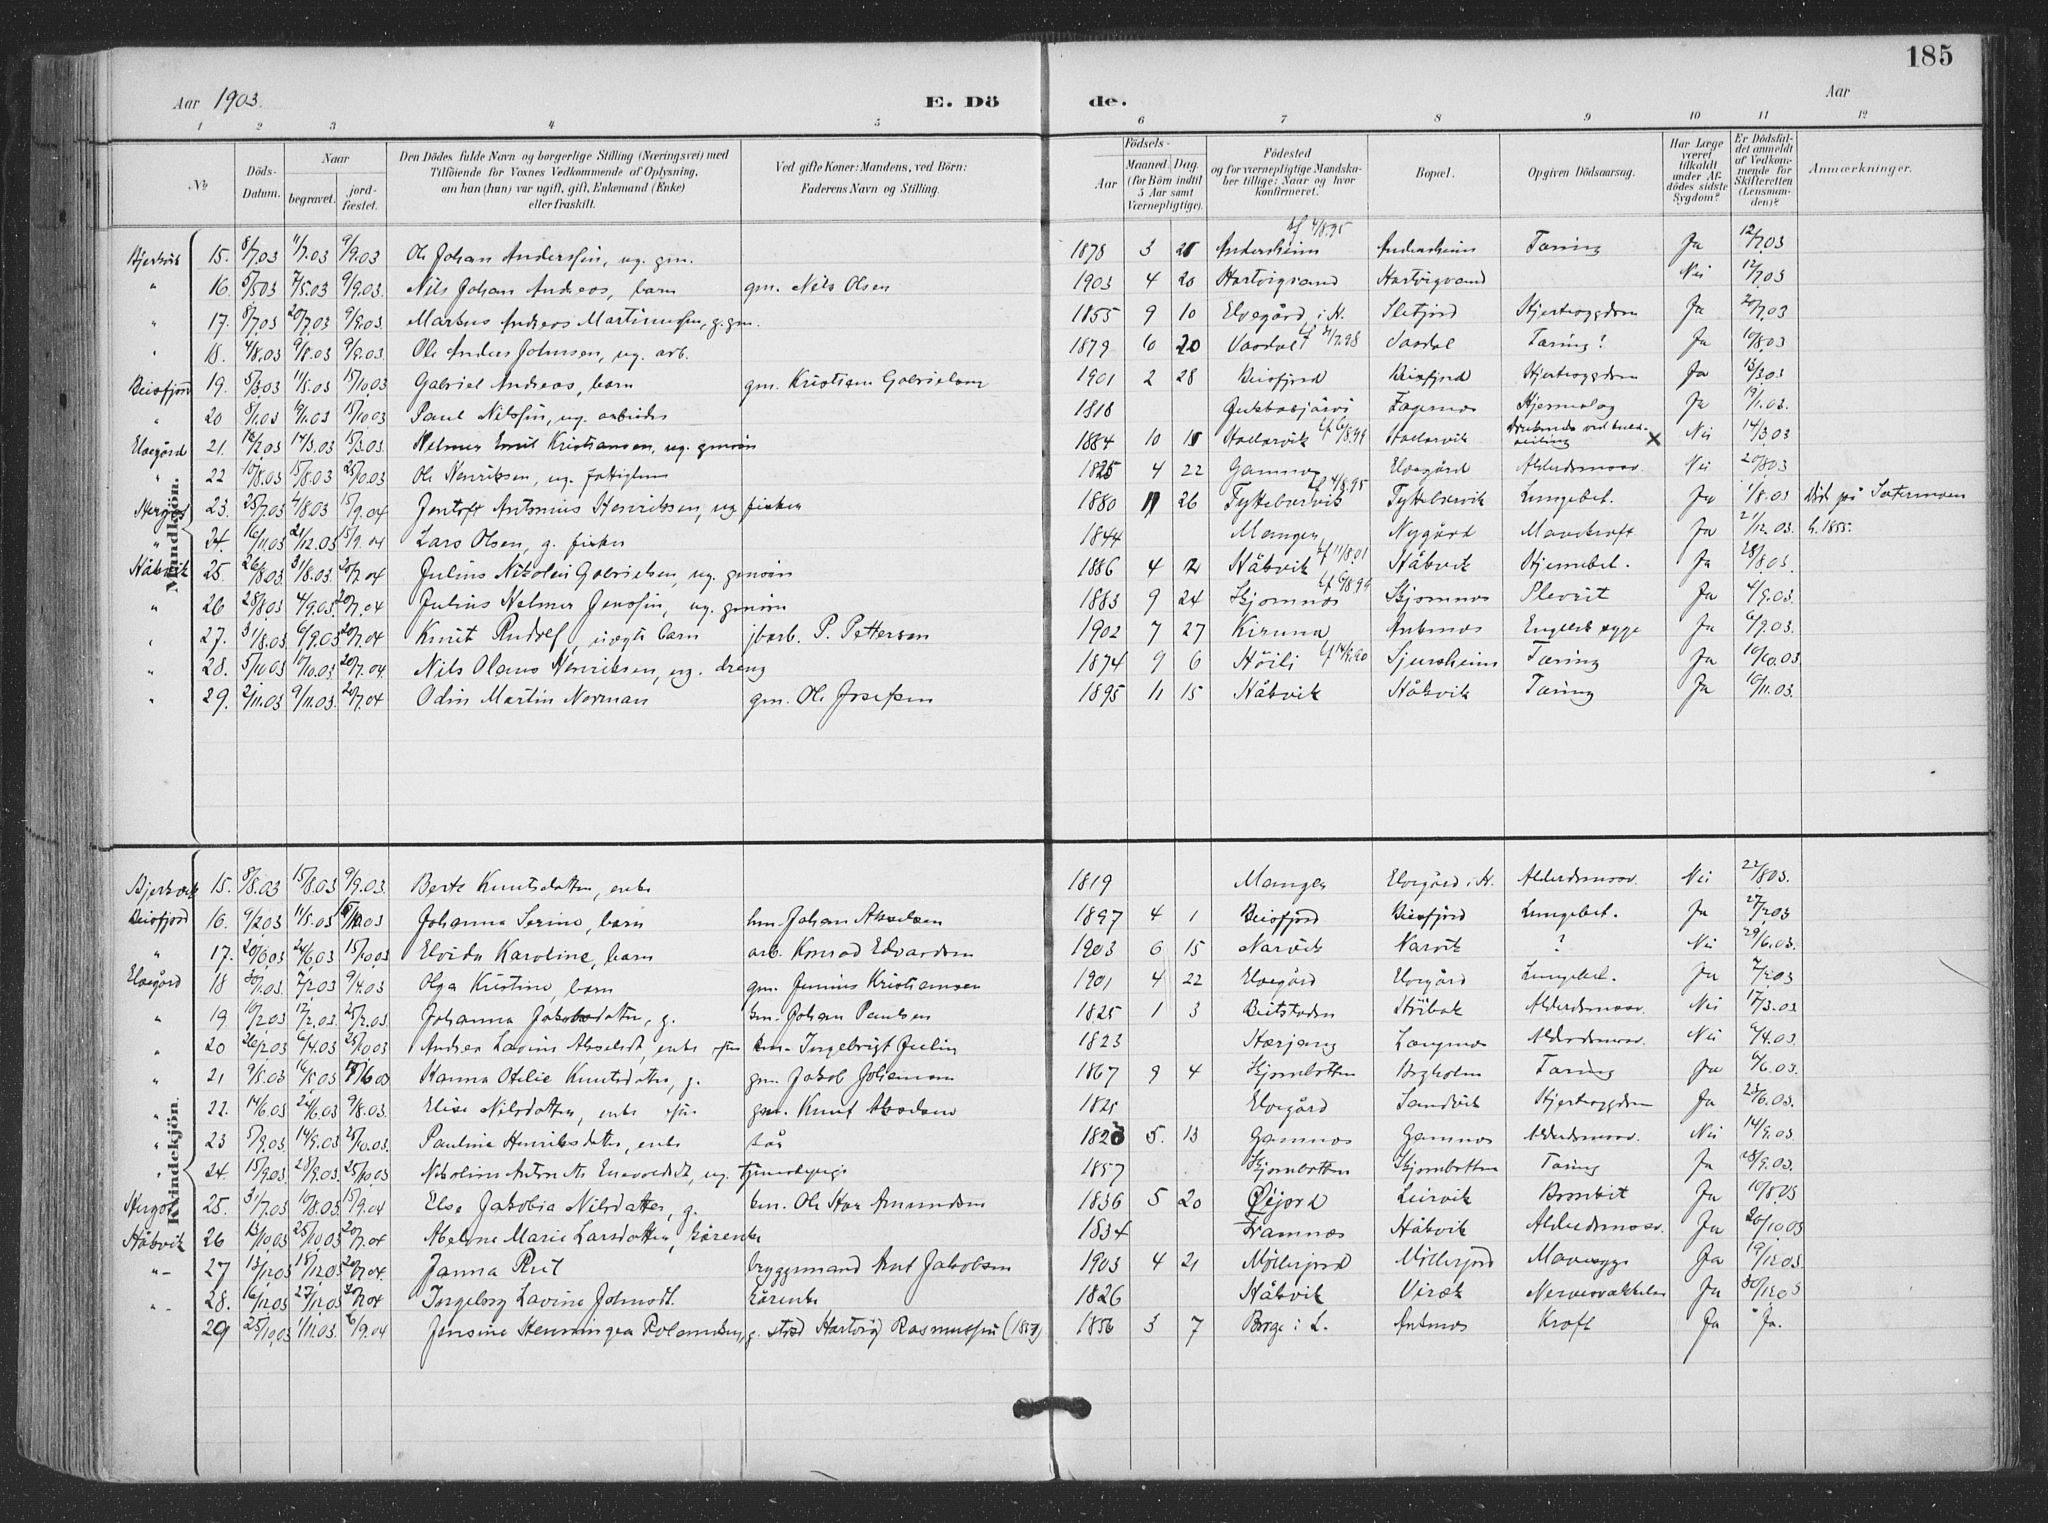 185
Aar 1903. E. Dö de. Aar
1 2 3 4 5 6 7 8 9 10 11 12
No
Döds-Datum.
Naar begravet. jord-fæstet.
Den Dödes fulde Navn og borgerlige Stilling (Næringsvei) med Tilföiende for Voxnes Vedkommende af Oplysning, om han (hun) var ugift, gift, Enkemand (Enke) eller fraskilt.
Ved gifte Koner: Mandens, ved Börn: Faderens Navn og Stilling.
Födsels- Aar Maaned. Dag. (for Börn indtil 5 Aar samt Værnepligtige).
Födested og for værnepligtige Mandska-ber tillige: Naar og hvor konfirmeret.
Bopæl.
Opgiven Dödsaarsag.
Har Læge været tilkaldt under Af-dödes sidste Sygdom?
Er Dödsfal-det anmeldt af Vedkom-mende for Skifteretten (Lensman-den)?
Anmærkninger.
Mandkjön.
Bjerkvik 15. 8/7.03 11/7.03 9/9.03 Ole Johan Anderssen, ug. gm. 1878 3 Andersheim Andersheim Tæring Ja 12/7.03
" 16. 5/5 03 7/5.03 9/9.03. Nils Johan Andreas, barn gm. Nils Olsen 1903 4 20 Hartvigvand Hartvigvand Nei 12/7.03
" 17. 8/7.03 20/7.03 9/9.03. Markus Andreas Martinussen, g. gm. 1855 9 10 Elvegård i H. Sletjord Hjertesygdom Ja 20/7.03
" 18. 4/8.03 9/8.03 9/9.03. Ole Anders Johnsen, ug. arb. 1879 10 20 Vasdal Vasdal Tæring? Ja 10/8.03
Beisfjord 19. 5/3.03 11/5.03 15/10.03 Gabriel Andreas, barn gm. Kristian Gabrielsen 1901 2 28 Beisfjord Beisfjord Hjertesygdom Ja 13/3.03
" 20 8/1.03 15/10.03 Paul Nilssen, ug. arbeider 1818 Jukkasjärvi Fagernes Hjerneslag Ja 19/1.03.
Elvegård 21. 14/3.03 15/3.03 Helmer Emil Kristiansen, ug. gmsøn 1884 10 Nei 14/3 03
" 22 10/8.03 15/8.03 25/10.03 Ole Henriksen, ug. fattiglem 4 22 Gamnes Elvegård Alderdomssv. Nei 20/8.03
Herjos 23. 25/7.03 4/8.03 15/9.04 Jentoft Antonius Henriksen, ug fisker 1880 26 Tyttebærvik Tyttebærvik Lungebet. Ja 1/8.03 Død på Sætermoen
" 24. 16/11.03 21/12.03 15/9.04 Lars Olsen, g. fisker 1844 Manger Nygård Mavekræft Ja 21/12.03. f. 1855.
Håkvik 25. 26/8.03 31/8.03. 20/7.04 Julius Nikolai Gabrielsen, ug. gmsøn 1886 4 2 Håkvik 11/8.01 Håkvik Hjernebet. Ja 28/8.03.
" 26 28/8.03 4/9.03. 20/7.04 Julius Helmer Jenssen, ug. gmsøn 1883 9 24 Skjomnes Skjomnes Plevrit Ja 4/9.03.
" 27. 31/8.03 6/9.03. 20/7.04 Knut Rudolf, uægte barn jbarb. P. Pettersen 1902 7 27 Kiruna Ankenes Engelsk syge Ja 6/9.03.
" 28. 5/10 03 10/10.03. 20/7.04 Nils Olaus Henriksen, ug. dreng 1874 9 6 Høili Sjursheim Tæring Ja 10/10.03.
" 29. 2/11.03 9/11.03. 20/7.04 Odin Martin Norman gm. Ole Josefsen 1895 11 15 Håkvik Håkvik Tæring Ja 10/11.03.
Kvindekjön.
Bjerkvik 15. 8/8.03 15/8.03 9/9.03 Berte Knutsdatter, enke 1819 Manger Elvegård i H. Alderdomssv. Nei 22/8 03.
Beisfjord 16. 9/2.03 11/5.03 Johanna Serine, barn hm. Johan Akselsen 1897 4 1 Beisfjord Beisfjord Lungebet. Ja 27/2 03
" 17. 20/6.03 24/6.03 15/10.03 Elvida Karoline, barn arb. Konrad Edvardsen 1903 6 15 Narvik Narvik ? Nei 29/6.03.
Elvegård 18 30/1.03. 7/2.03 9/4.03 Olga Kristine, barn gm. Jenius Kristiansen 1901 4 22 Elvegård Elvegård Lungebet. Ja 7/2.03
" 19 10/2.03 17/2.03. 25/2.03. Johanna Jakobsdatter, g. hm. Johan Paulsen 1825 1 3 Beitstaden Alderdomssv. Nei 17/3.03
" 20 26/2.03 6/4.03 25/10.03 Andrea Lavina Akseldt., enke Ingebrigt Julin 1823 Herjang Langnes Alderdomssv. Nei 6/4.03
" 21 9/5.03 16/5.03 Hanna Otilie Knutsdatter, g. gm. Jakob Johansen 1867 9 4 Skjombotten Bergholm Tæring Ja 6/6.03.
" 22. 14/6.03 24/6.03 9/8.03. Elise Nilsdatter, enke gm. Knut 182 Elvegård Sandvik Hjertesygdom Ja 23/6.03.
" 23 5/9.03. 14/9.03 25/10.03 Paulina Henriksdatter, enke kår 182 5. 13 Gamnes Gamnes Alderdomssv. Nei 14/9.03
" 24. 15/9.03 28/9.03. 25/10.03 Nikoline Antonette ug tjenestepige 1857 Skjombotten Skjombotten Tæring Ja 28/9.03.
Herjos 25. 31/7.03 10/8.03. 15/9.04 Else Jakobia Nilsdatter, g. hm. Ole Amundsen 1836 5 20 Øijord Leirvik Bronkit Ja 10/8.03
Håkvik 26 13/10.03 25/10 03 20/7.04 Abelone Marie Larsdatter, kårenke 1834 Framnes Håkvik Alderdomssv. Ja 20/10.03
" 27 13/12 03 18/12.03 20/7.04. Janna Rut bryggemand Jakobsen 1903 4 21 Møllefjord Møllefjord Mavesyge Ja 19/12.03
" 28. 16/12.03 27/12.03 20/7.04 Ingeborg Lavina Johnsdt. kårenke 1826 Håkvik Virak Ja 30/12.03
29 25/10.03 1/11.03. 6/9.04 Jensine Henningea Rolandsen, g. Hartvig Rasmussen 1856 3 7 Borge i L. Ankenes Kræft Ja Ja.